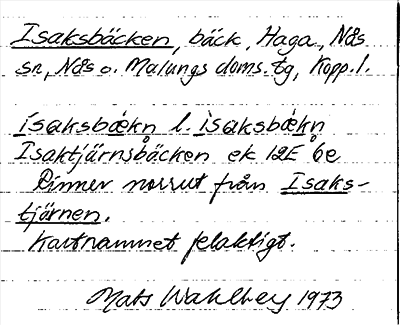 Isaksbäcken, bäck, Haga, Nås
sn, Nås o. Malungs doms. tg, Kopp. l.
ísaksbækn l. ìsaksbækn
Isaktjärnsbäcken ek 12E 6e
Rinner norrut från Isaks-
tjärnen.
Kartnamnet felaktigt.
Mats Wahlberg 1973